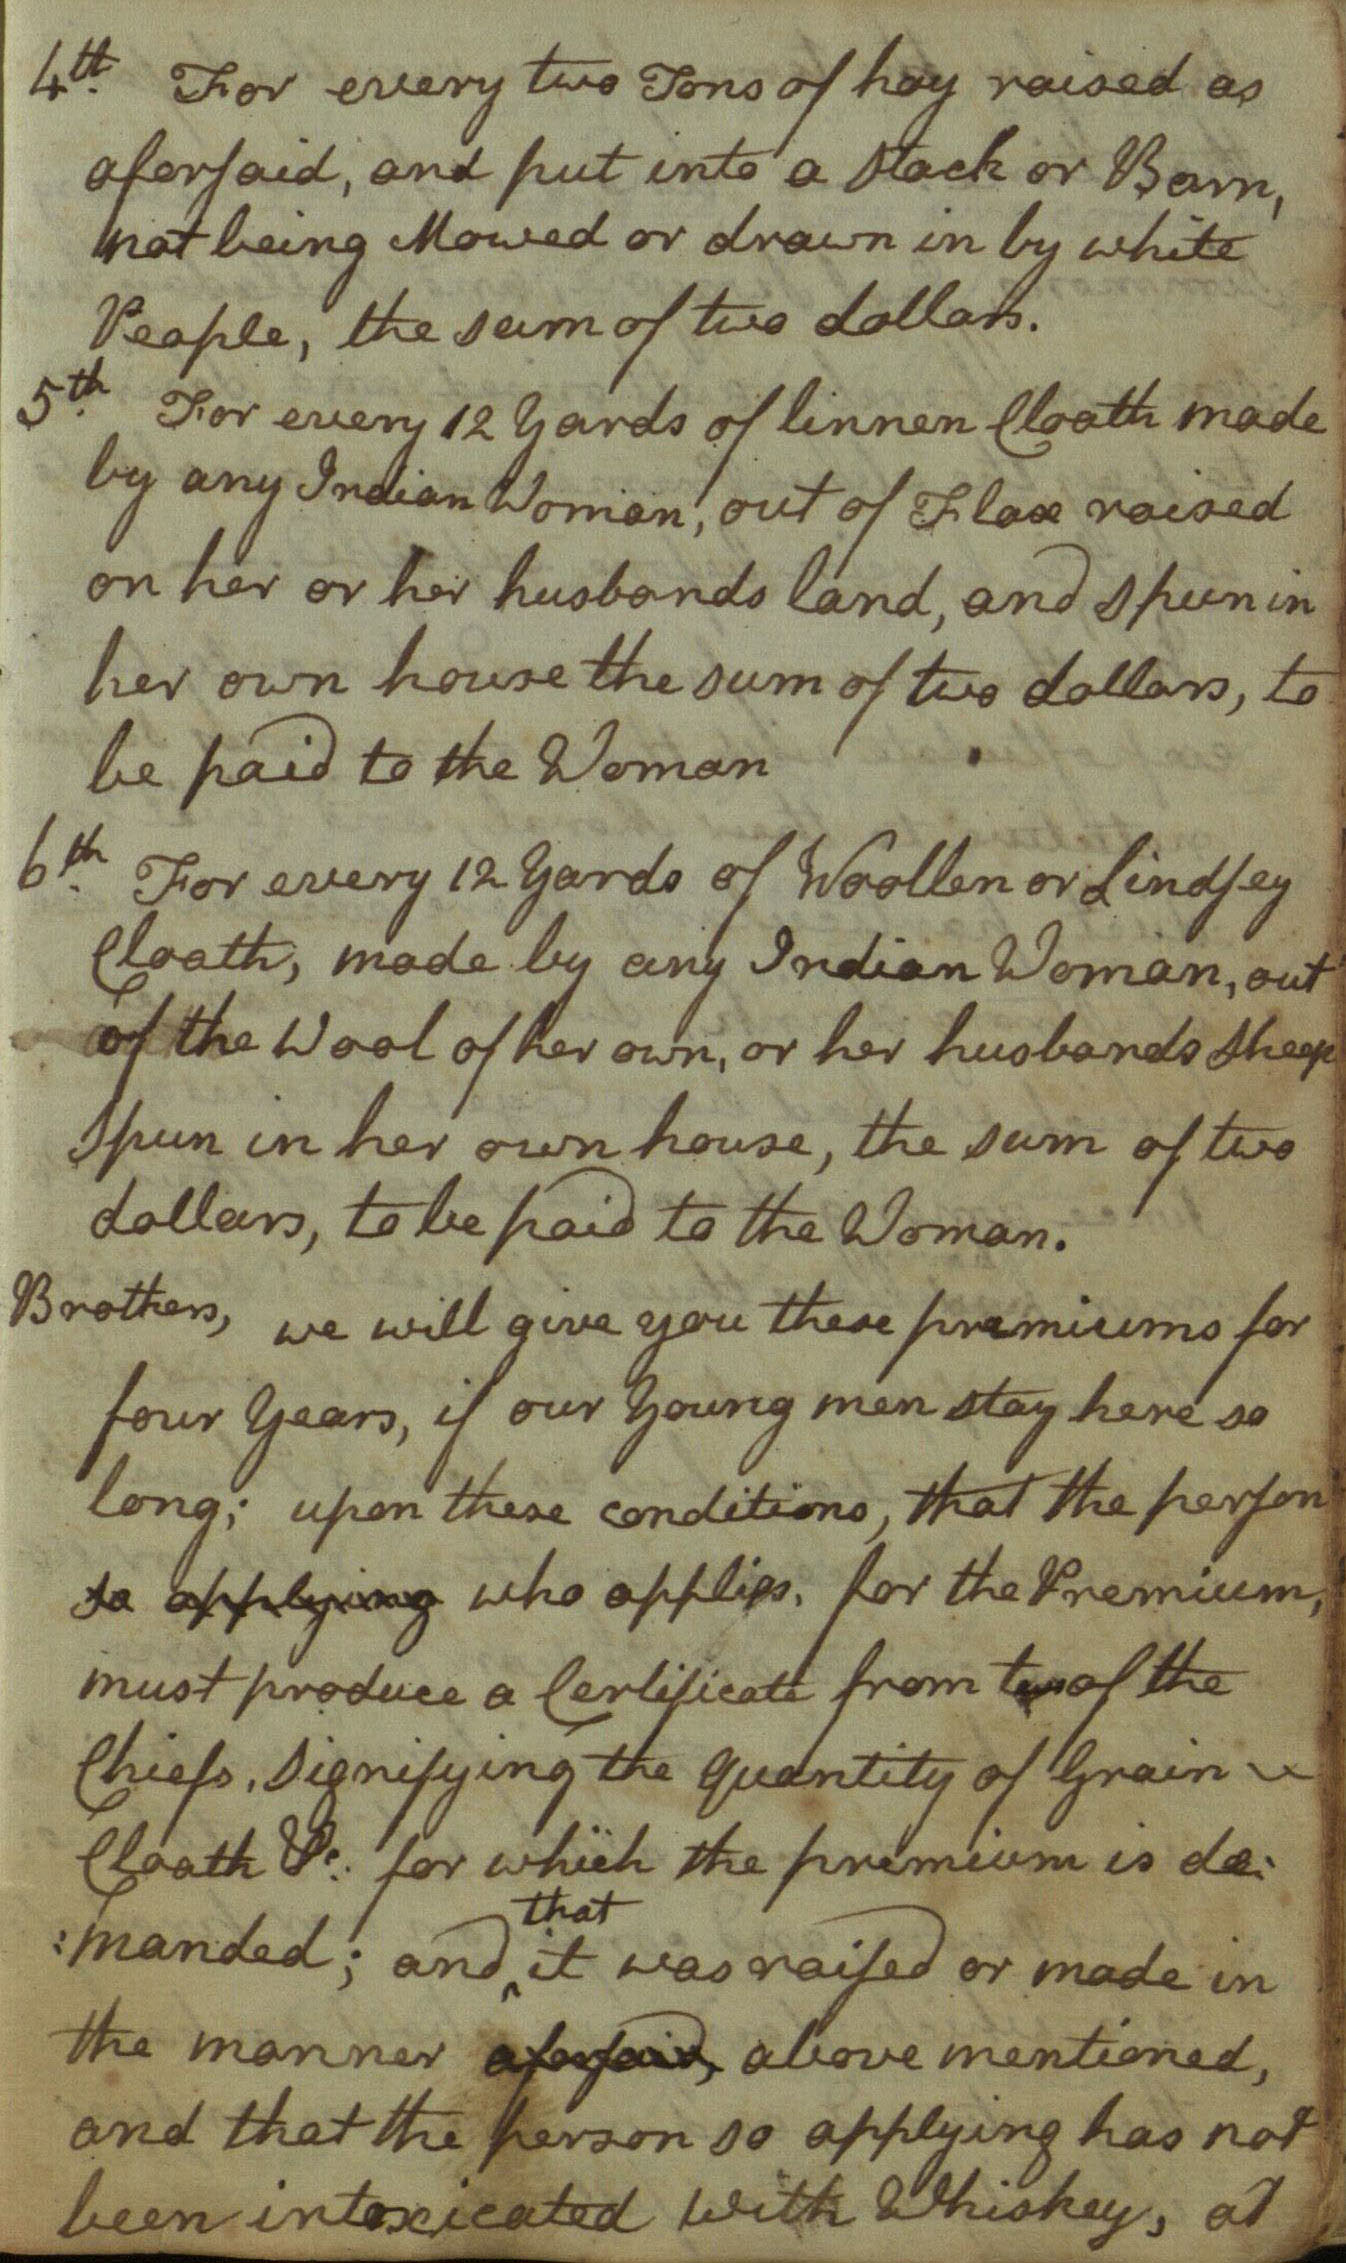 4th. For every two Tons of hay raised as
afersaid, and put into a stack or Barn,
not being Mowed or drawn in by white
People, the sum of two dollars.
5th. For every 12 Yards of linnen Cloath made
by any Indian Woman, out of Flax raised
on her or her husbands land, and spun in
her own house the sum of two dollars, to
be paid to the Woman
6th. For every 12 Yards of Woollen or Lindsey
Cloath, made by any Indian Woman, out
of the Wool of her own, or her husbands sheep
spun in her own house, the sum of two
dollars, to be paid to the Woman.
Brothers, we will give you these premiums for
four Years, if our Young men stay here so
long; upon these conditions, that the person
so applying who applies. for the Premium,
must produce a Certificate from two of the
Chiefs, signifying the quantity of Grain
Cloath &c: for which the premium is de:
that
:manded; and ^ it was raised or made in
the manner afersaid, above mentioned,
and that the person so applying has not
been intoxicated with Whiskey, at